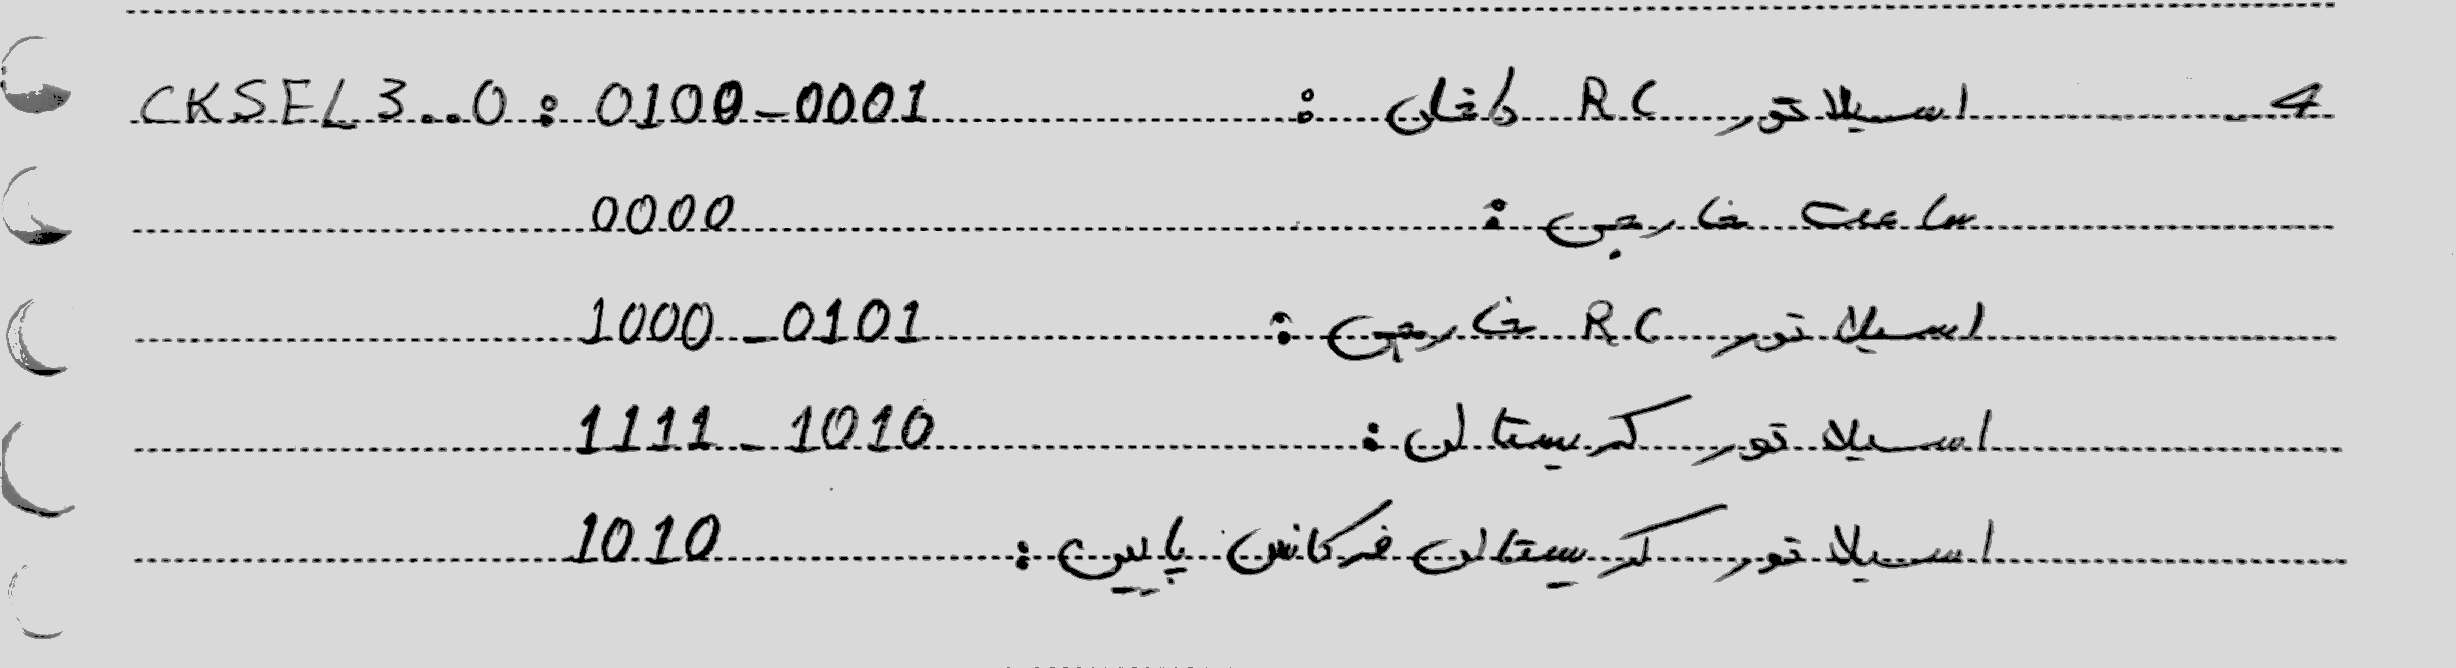 4- اسیلاتور RC داخلی : CKSEL3..0 : 0100-0001
ساعت خارجی : 0000
اسیلاتور RC خارجی : 1000-0101
اسیلاتور کریستالی : 1111-1010
اسیلاتور کریستالی فرکانس پایین : 1010